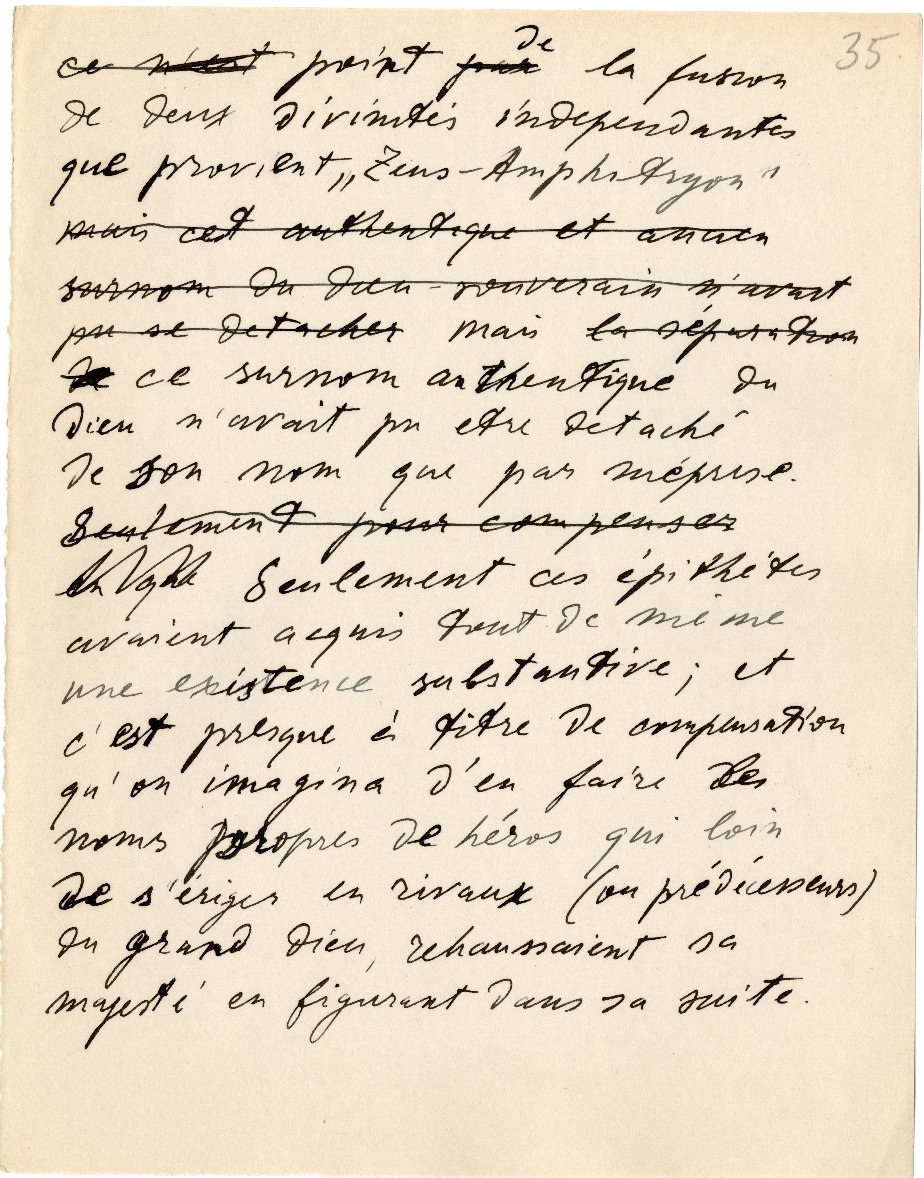 35
ce n'est point par de la fusion
de deux divinités independantes
que provient „Zeus-Amphitryon"
mais cet authentique et ancien
surnom du dieu souverain n'avait
pu se detacher mais la séparation
de ce surnom authentique du
Dieu n'avait pu etre detaché
de son nom que par méprise.
Seulement pour compenser
Seulement ces épithétes
avaient acquis tout de même
une existence substantive; et
c'est presque à titre de compensation
qu'on imagina d'en faire des
noms propres de héros qui loin
de s'ériger en rivaux (ou prédécesseurs)
du grand dieu, rehaussaient sa
majesté en figurant dans sa suite.